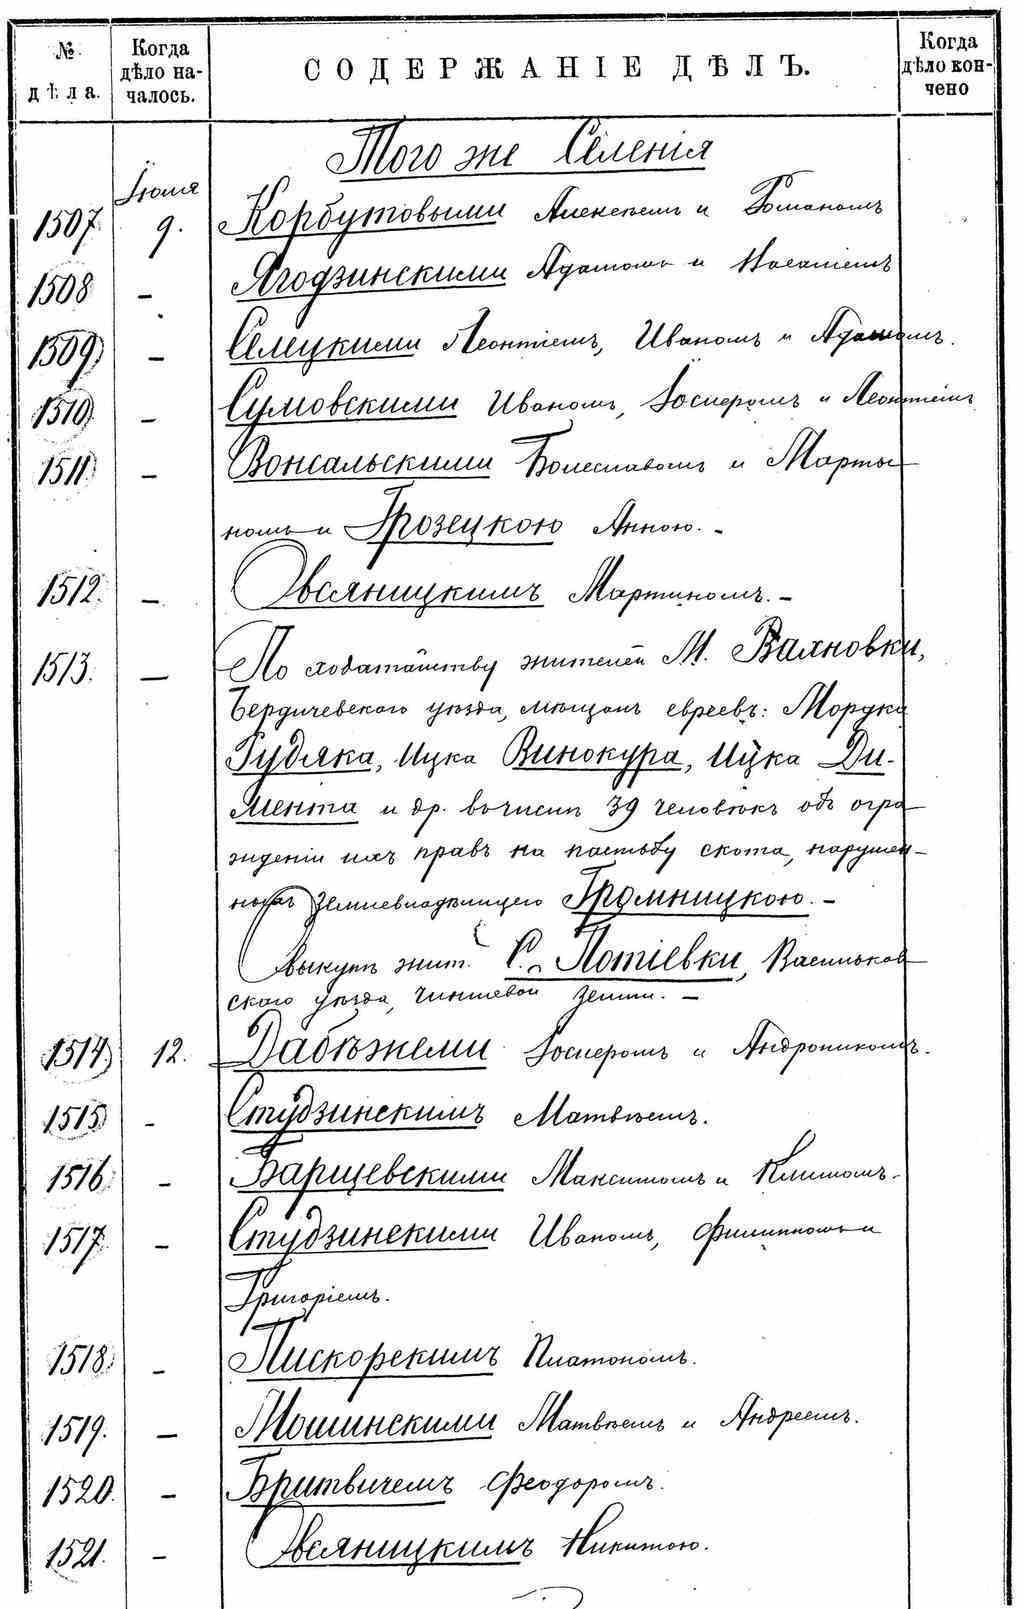 № дѣла.
Когда дѣло началось.
СОДЕРЖАНІЕ ДѢЛЪ.
Когда дѣло кончено
Того же Селенія
Іюля
1507. 9. Корбутовыми Алексѣемъ и Романомъ
1508 – Ягодзинскими Адамомъ и Игнатіемъ
1509 – Селецкими Леонтіемъ, Иваномъ и Адамомъ.
1510 – Сумовскими Иваномъ, Іосифомъ и Леонтіемъ
1511 – Вонсальскими Болеславомъ и Марты-
номъ и Грозецкою Анною. –
1512. – Овсяницкимъ Мартиномъ. –
1513. – По ходатайству жителей М. Вахновки,
Бердичевскаго уѣзда, мѣщанъ евреевъ: Мордка
Гудзяка, Ицка Винокура, Ицка Ди-
мента и др. въ числѣ 39 человѣкъ объ огра-
жденіи ихъ правъ на пастьбу скота, нарушен-
ныхъ землевладѣлицею Громницкою. –
О выкупѣ жит. С. Потіевки, Васильков-
скаго уѣзда, чиншевой земли. –
1514. 12. Дабѣжеми Іосифомъ и Андроникомъ.
1515 – Студзинскимъ Матвѣемъ.
1516 – Барщевскими Максимомъ и Климомъ.
1517. – Студзинскими Иваномъ, Филиппомъ и
Григоріемъ.
1518. – Пискорскимъ Платономъ.
1519. – Мошинскими Матвѣемъ и Андреемъ.
1520. – Бритвичемъ Феодоромъ.
1521. – Овсяницкимъ Никитою.